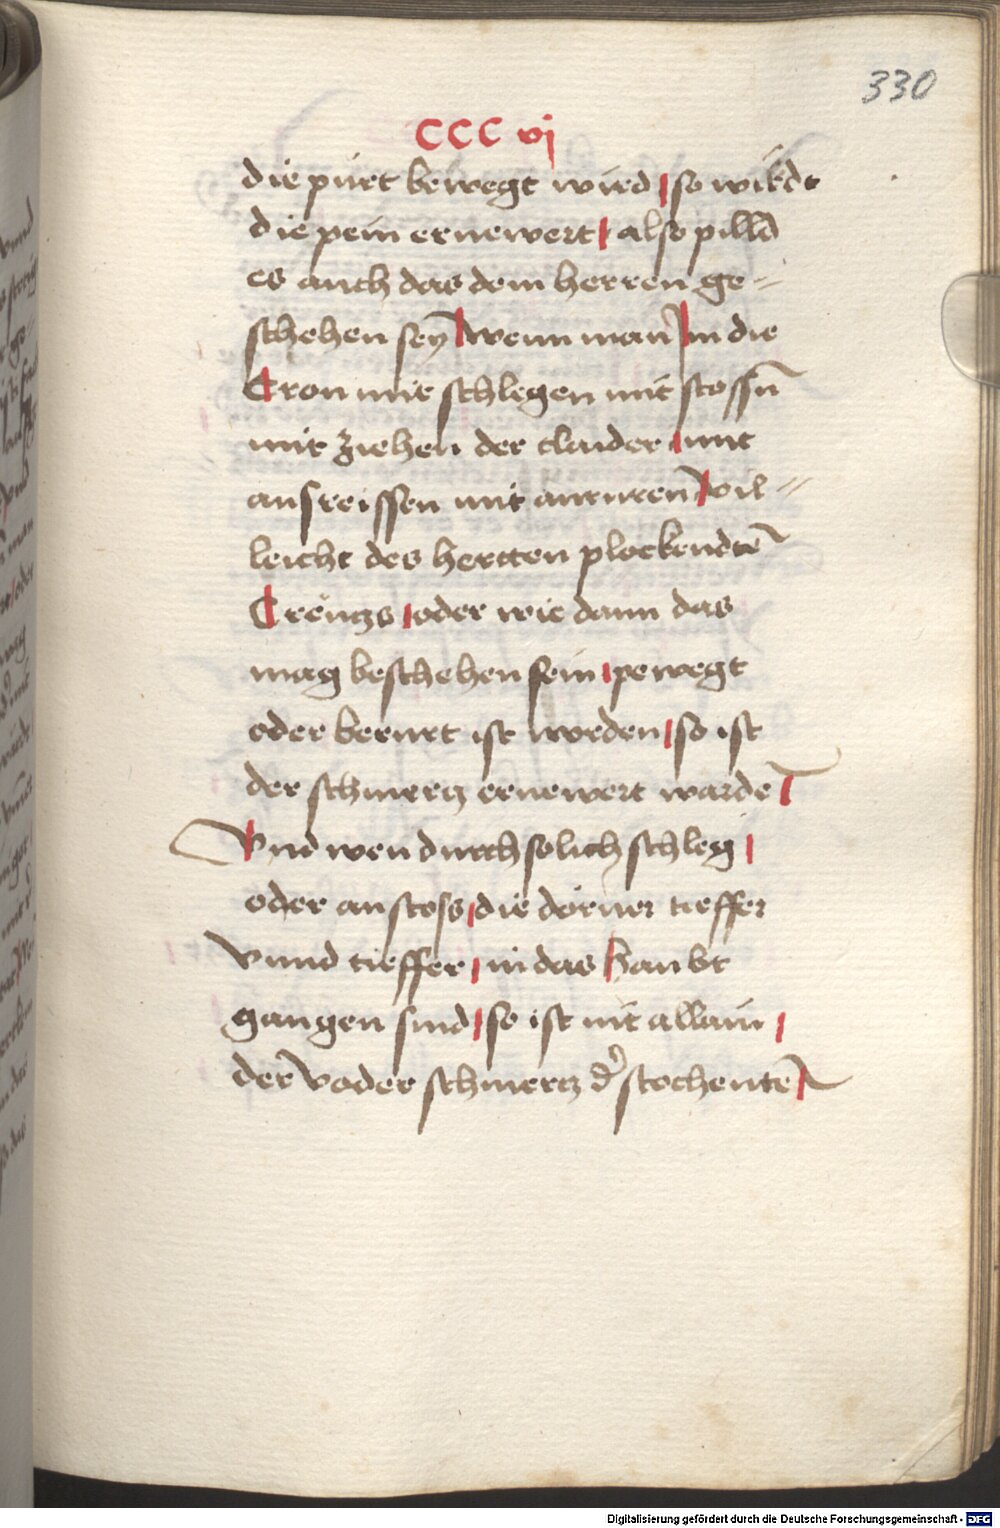 330
CCC vj
die pürt bewegt wird so wirdt
die pein ernewert also pilld
es auch das dem herren ge-
schehen sey wenn man in die
Cron mit schlegen mit stossn̄
mit ziehen der claider mit
ausreissen mit anruren vil-
leicht des hertten plockendtē
Creützs oder wie dann das
mag beschehen sein pewegt
oder berurt ist worden so ist
der schmertz ernewert wardē
Vnd wen durch solich schleg
oder anstoss die dörner tieffer
vnnd tieffer in das haubt
gangen sind so ist nit allain
der voder schmertz d' stochentē
Digitalisierung gefördert durch die Deutsche Forschungsgemeinschaft - DFG